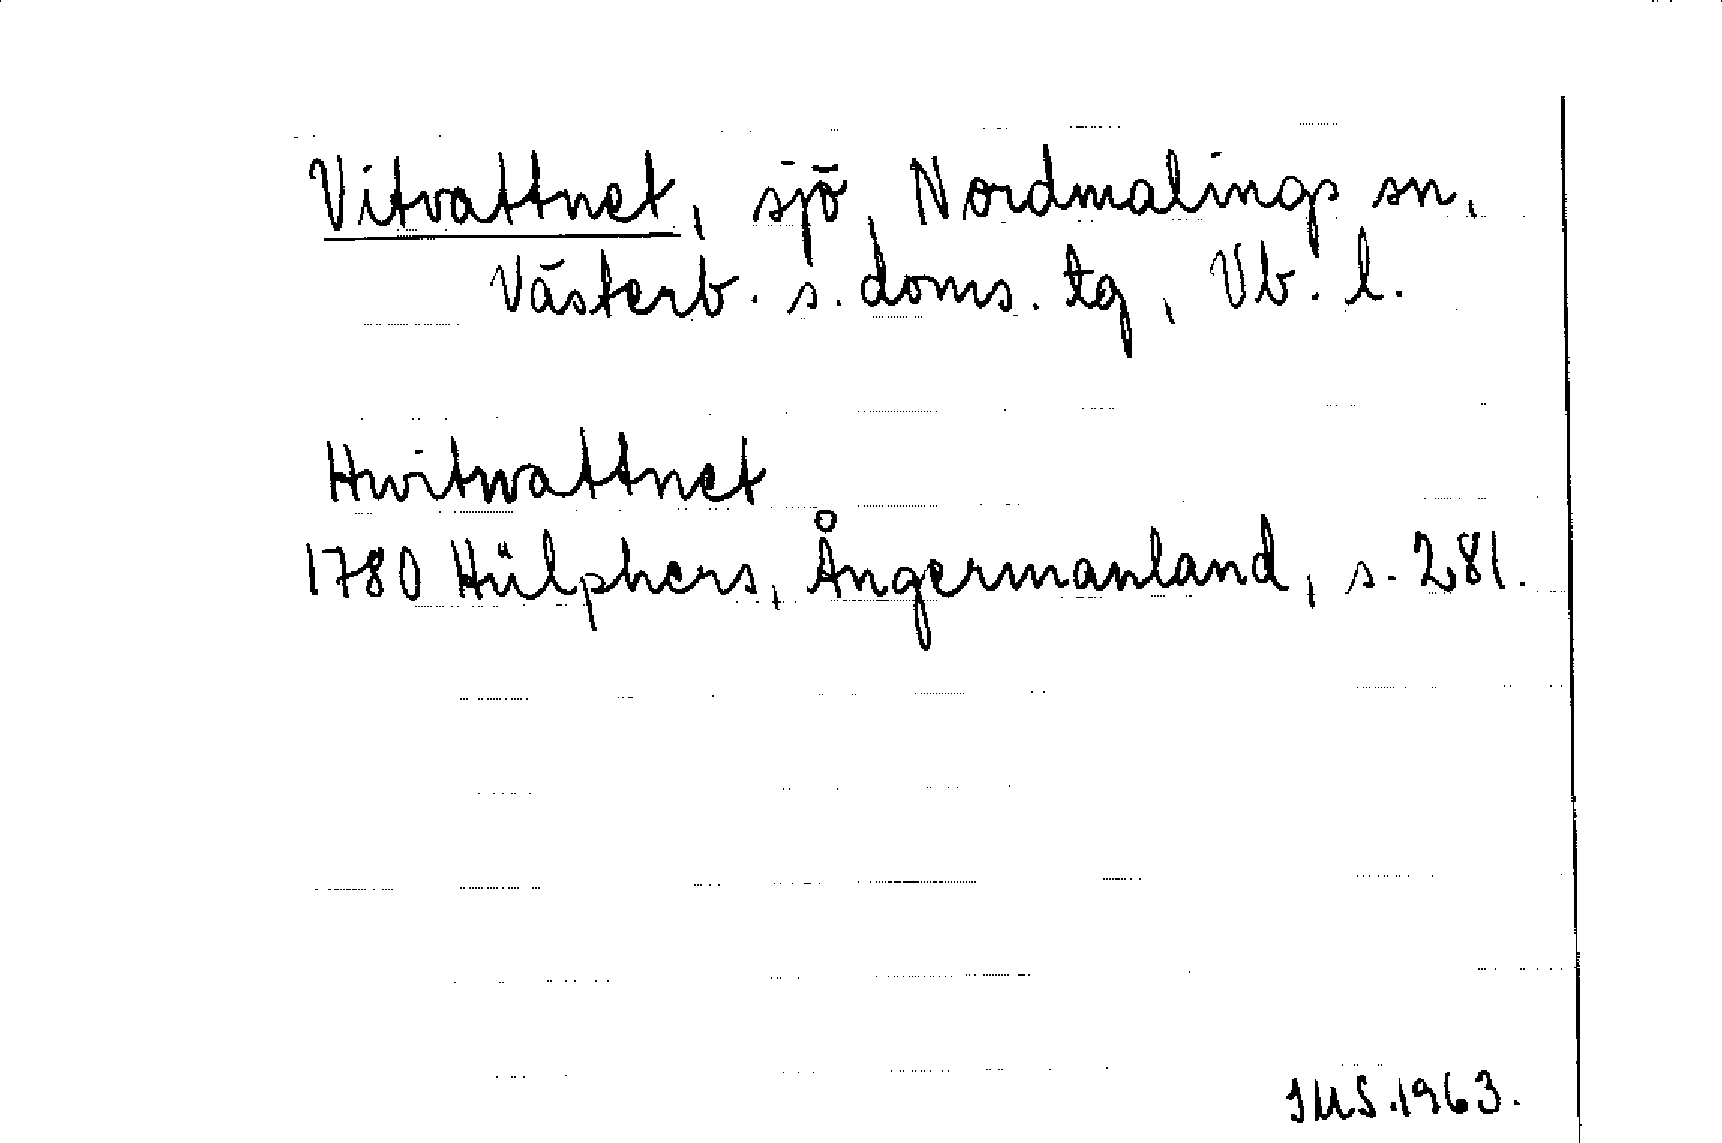 Vitvattnet, sjö, Nordmalings sn,
Västerb. s. doms. tg, Vb. l.
Hwitwattnet
1780 Hülphers, Ångermanland, s. 281.
IMS.1963.